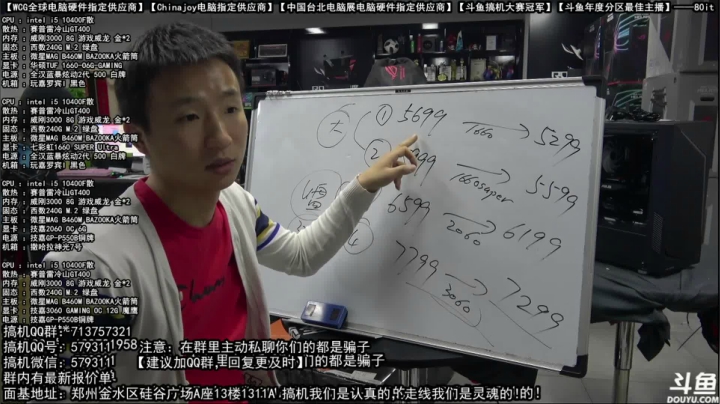 【WCG全球电脑硬件指定供应商】【Chinajoy电脑指定供应商】【中国台北电脑展电脑硬件指定供应商】【斗鱼搞机大赛冠军】【斗鱼年度分区最佳主播】——80it
CPU : intel i5 10400F散
散热 : 赛普雷冷山GT400
内存 : 威刚3000 8G 游戏威龙 金*2
固态 : 西数240G M.2 绿盘
主板 : 微星MAG B460M BAZOOKA火箭筒
显卡 : 华硕TUF 1660-O6G-GAMING
电源 : 全汉蓝暴炫动2代 500 白牌
机箱 : 玩嘉罗宾1 黑色
CPU : intel i5 10400F散
散热 : 赛普雷冷山GT400
内存 : 威刚3000 8G 游戏威龙 金*2
固态 : 西数240G M.2 绿盘
主板 : 微星MAG B460M BAZOOKA火箭筒
显卡 : 七彩虹1660 SUPER Ultra
电源 : 全汉蓝暴炫动2代 500 白牌
机箱 : 玩嘉罗宾1 黑色
CPU : intel i5 10400F散
散热 : 赛普雷冷山GT400
内存 : 威刚3000 8G 游戏威龙 金*2
固态 : 西数240G M.2 绿盘
主板 : 微星MAG B460M BAZOOKA火箭筒
显卡 : 技嘉2060 OC 6G
电源 : 技嘉GP-P550B铜牌
机箱 : 撒哈拉神光7号
CPU : intel i5 10400F散
散热 : 赛普雷冷山GT400
内存 : 威刚3000 8G 游戏威龙 金*2
固态 : 西数240G M.2 绿盘
主板 : 微星MAG B460M BAZOOKA火箭筒
显卡 : 技嘉3060 GAMING OC 12G 魔鹰
电源 : 技嘉GP-P550B铜牌
① 5699 1660 → 5299
② 99 1660super → 5599
6599 2060 → 6199
④ 7799 3060 → 7299
搞机QQ群: 713757321
搞机QQ号: 5793111958 注意: 在群里主动私聊你们的都是骗子
搞机微信: 5793111 【建议加QQ群,里回复更及时】门的都是骗子
群内有最新报价单
面基地址: 郑州金水区硅谷广场A座13楼1311A
斗鱼
DOUYU.COM